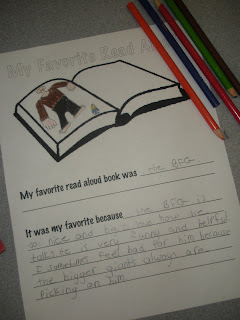 My Favorite Read A
My favorite read aloud book was the BFG
It was my favorite because the BFG is
so nice and he how he
talks he is very funny and helpful
I sometimes feel bad for him because
the bigger giants always are
picking on him